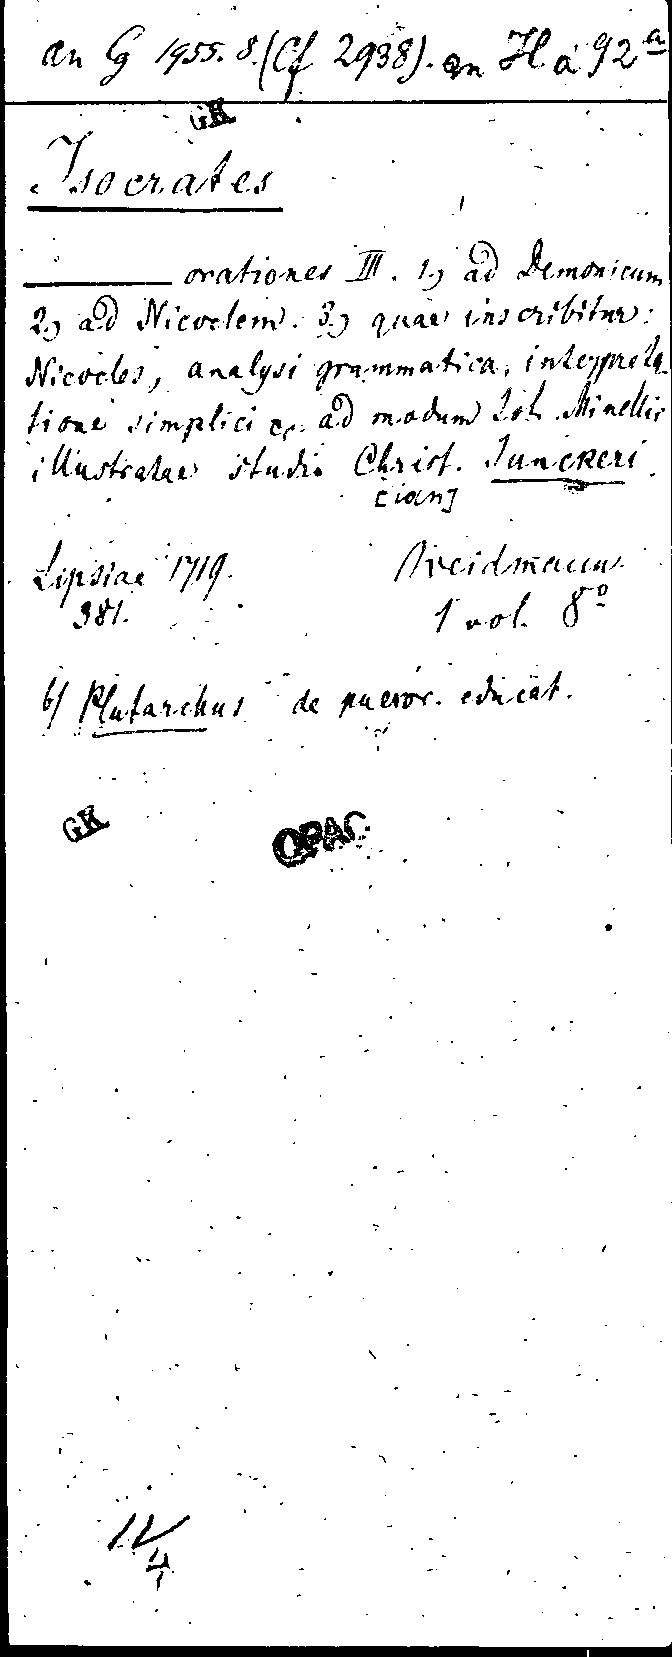 an Cg 1955. 8. (Cf 2938). an H a 92 a
GK
Isocrates
orationes III. 1.) ad Demonicum
2.) ad Nicoclem. 3.) quae inscribitur:
Nicocles, analysi grammatica, interpreta-
tione simplici ad modum Joh. Minellii
illustratae studio Christ. Junckeri
[ian]
Lipsiae 1719. Weidmann.
381. 1 vol. 8º
b/ Plutarchus de pueror. educat.
GK OPAC
4